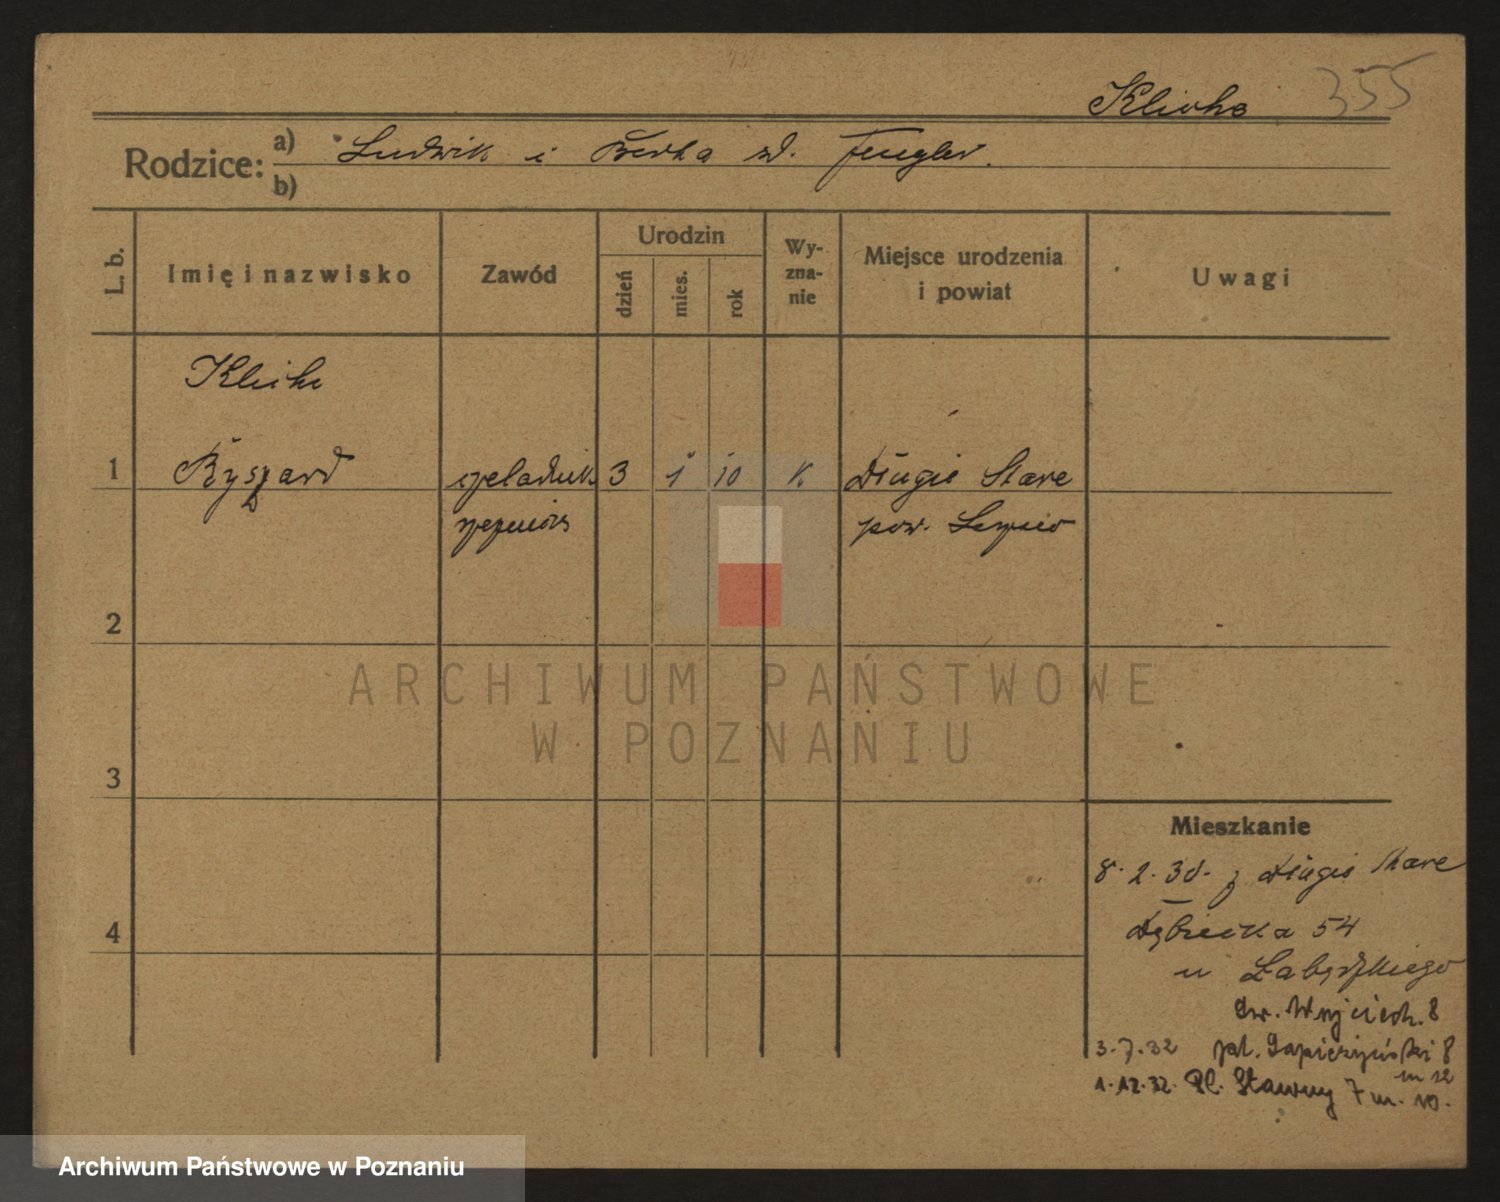 355
Klichs
Rodzice: a) Ludwik i Berta zd. Fengler.
b)
L. b.
Imię i nazwisko
Zawód
Urodzin
dzień
mies.
rok
Wy-
zna-
nie
Miejsce urodzenia
i powiat
Uwagi
Klichs
1 Ryszard czeladnik 3 1 10 K Długie Stare
pow. Leszno
2
3
4
Mieszkanie
8.2.30. z Długie Stare
Dębiecka 54
u Łabędzkiego
Św. Wojciech. 8
3.7.32 pl. Sapieżyński 8
m 12
1.12.32. Pl. Stawny 7 m. 10.
ARCHIWUM PAŃSTWOWE
W POZNANIU
Archiwum Państwowe w Poznaniu